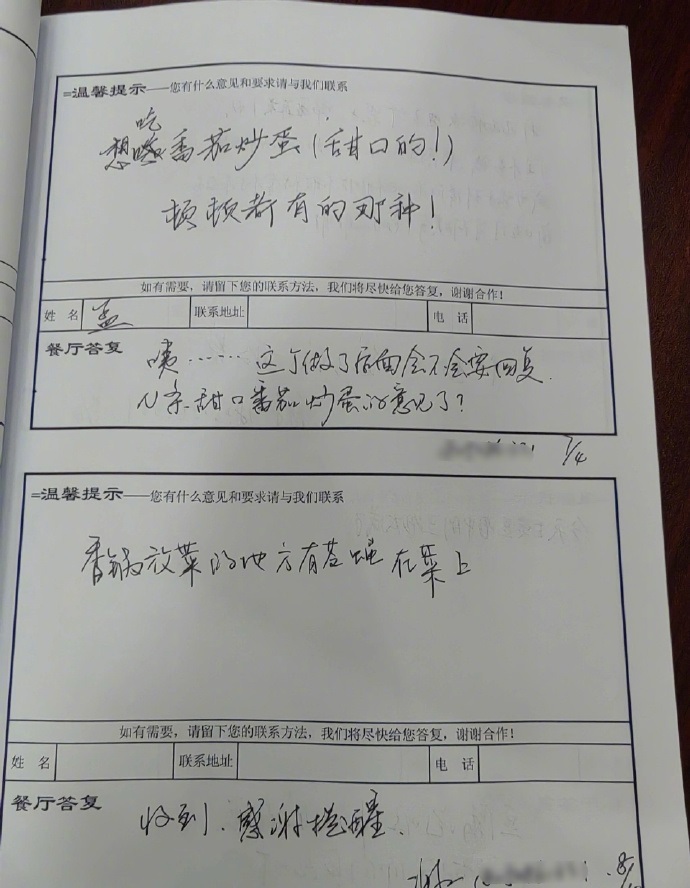 =温馨提示——您有什么意见和要求请与我们联系
吃
想番茄炒蛋(甜口的!)
顿顿都有的那种!
如有需要，请留下您的联系方法，我们将尽快给您答复，谢谢合作!
姓 名 孟 联系地址 电 话
餐厅答复
咦……这个做了后面会不会要回复
N条甜口番茄炒蛋的意见了?
7/4
=温馨提示——您有什么意见和要求请与我们联系
香锅放菜的地方有苍蝇在菜上
如有需要，请留下您的联系方法，我们将尽快给您答复，谢谢合作!
姓 名 联系地址 电 话
餐厅答复
收到、感谢提醒.